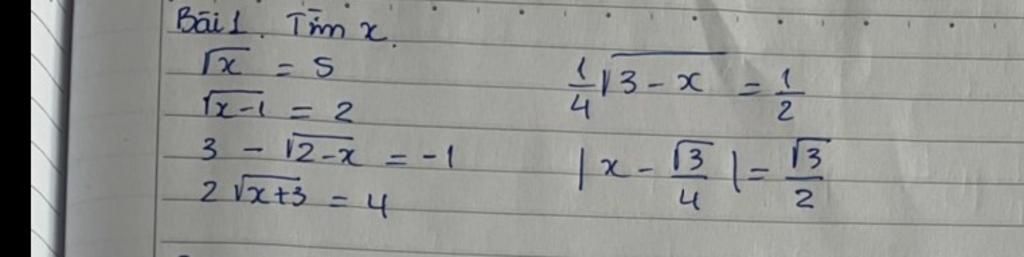 Bài 1. Tìm x.
√x = 5
√(x-1) = 2
3 - √(2-x) = -1
2√(x+3) = 4
1/4 √(3-x) = 1/2
|x - √3/4| = √3/2